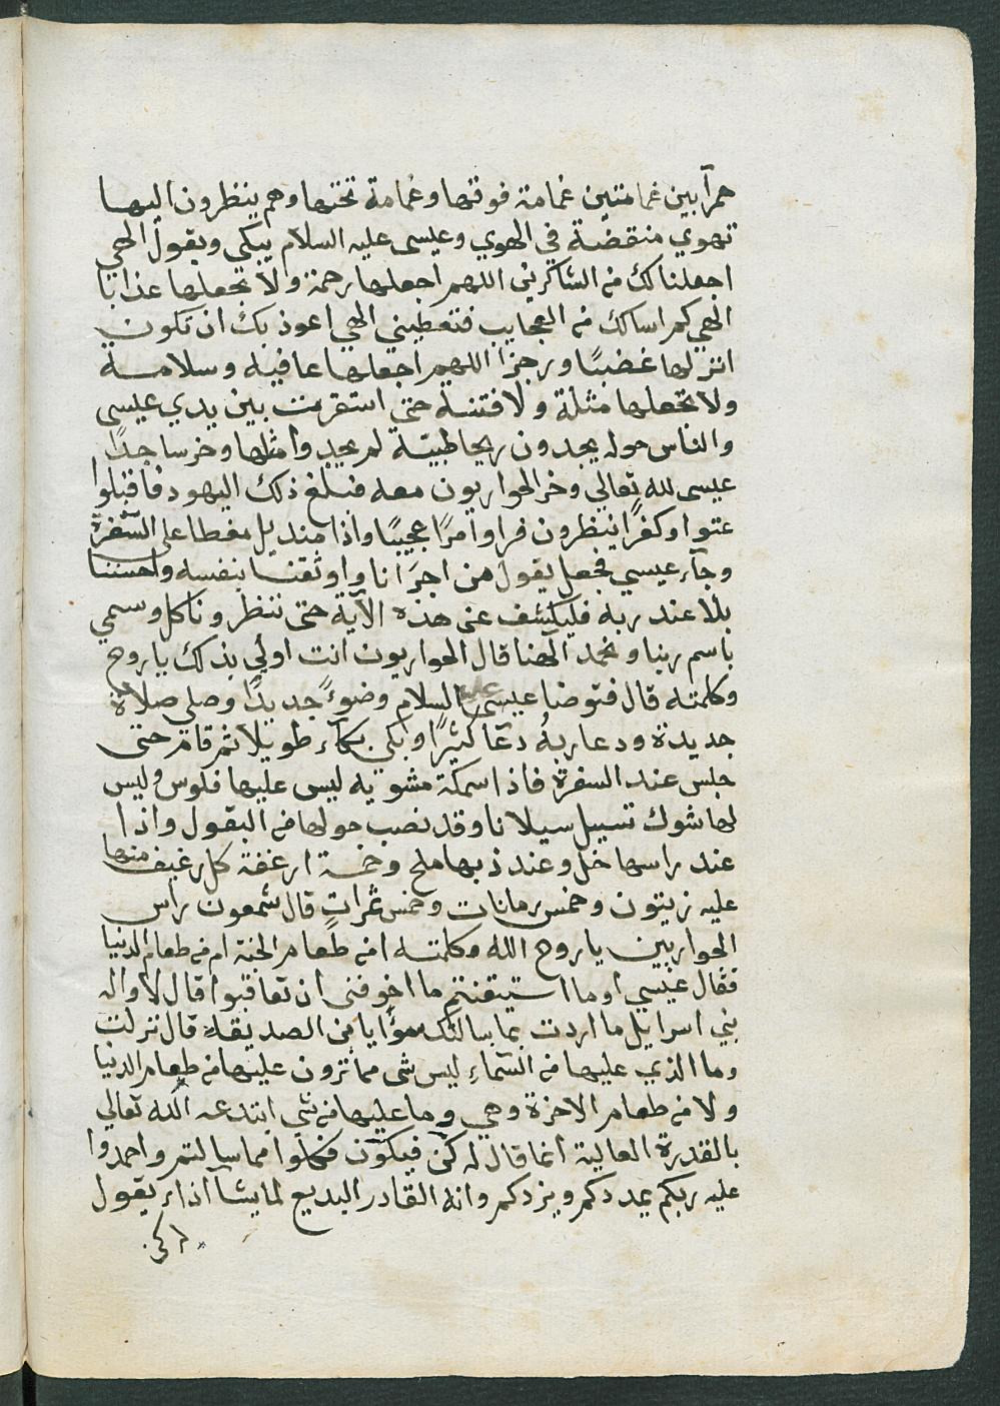 حمرآ بين غمامتين غمامة فوقها وغمامة تحتها وهم ينظرون اليها
تهوي منقضة في الهوي وعيسى عليه السلام يبكى ويقول الهي
اجعلنا لك من الشاكرين اللهم اجعلها رحمة ولا تجعلها عذابا
الهي كم اسالك من العجايب فتعطيني الهي اعوذ بك ان تكون
انزلها غضبًا ورجزا اللهم اجعلها عافية وسلامة
ولا تجعلها مثلة ولا فتنة حتى استقرت بين يدي عيسى
والناس حوله يجدون ريحا طيبة لم يجدوا مثلها وخر ساجدًا
عيسى لله تعالي وخر الحواريون معه فبلغ ذلك اليهود فاقبلوا
عتوا وكفرًا ينظرون فراوا امرًا عجيبًا واذا منديل مغطا على السفرة
وجآء عيسي فجعل يقول من اجرَانا واوثقنا بنفسه واحسننا
بلا عند ربه فليكشف عن هذه الآية حتى ننظر وناكل وسمي
باسم ربنا ونحمد آلهنا قال الحواريون انت اولي بذلك يا روح
وكلمته قال فتوضا عيسى عليه السلام وضوءً جديدًا وصلى صلاة
جديدة ودعا ربهُ دعًا كثيرًا وبكى بكآء طويلا ثم قام حتى
جلس عند السفرة فاذا سمكة مشويه ليس عليها فلوس وليس
لها شوك تسيل سيلانا وقد نصب حولها من البقول واذا
عند راسها خل وعند ذنبها ملح وخمسة ارغفة كل رغيف منها
عليه زيتون وخمس رمانات وخمس ثمرات قال شمعون راس
الحواريين يا روح الله وكلمته امن طعام الجنة ام من طعام الدنيا
فقال عيسي اوما استيقنتم ما اخوفنى ان تعاقبوا قال لا واله
بني اسرايل ما اردت بما سالتك سؤا يا بن الصديقة قال نزلت
وما الذي عليها من السماءِ ليس شى مما ترون عليها من طعام الدنيا
ولا من طعام الاخرة وهي وما عليها من شي ابتدعه الله تعالي
بالقدرة العالية انما قال له كن فيكون فكلوا مما سالتم واحمدوا
عليه ربكم يمددكم ويزدكم وانه القادر البديع لما يشآ اذا يقول